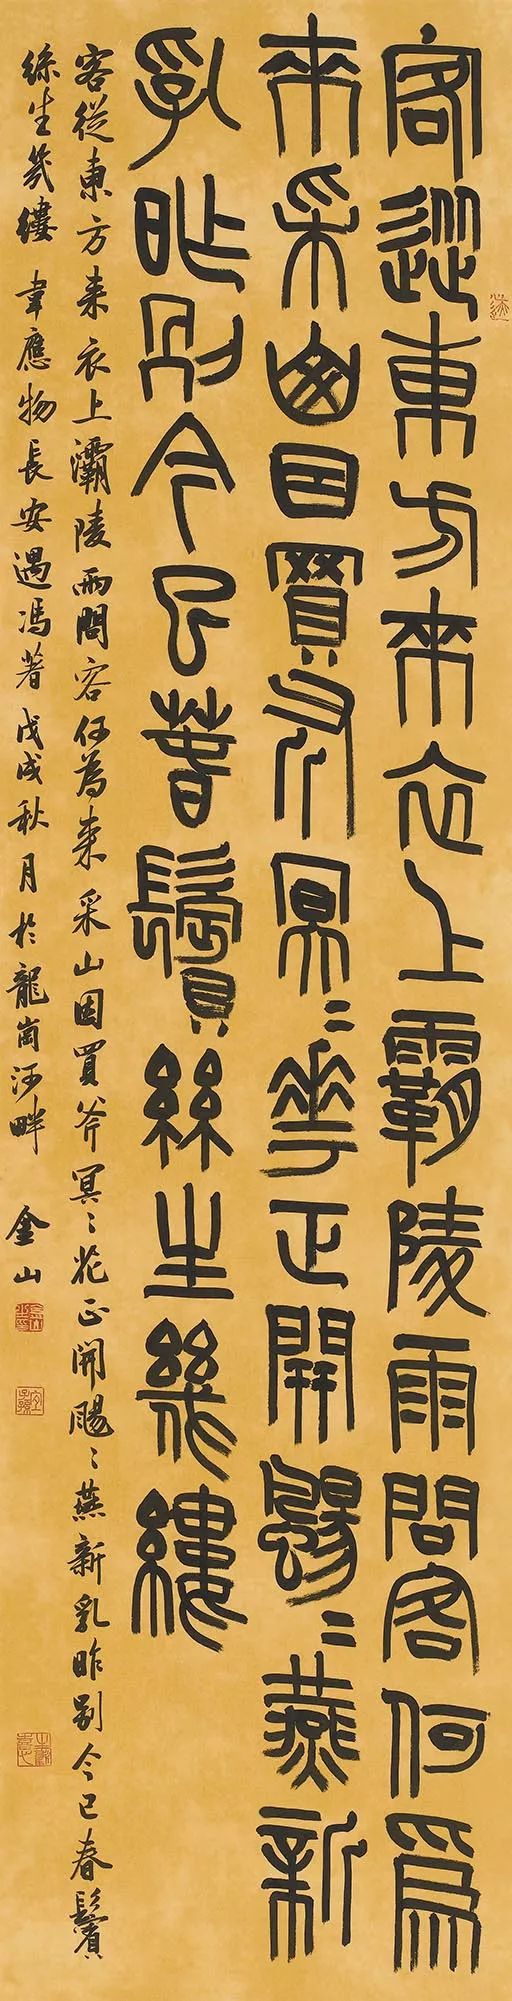 客從東方來衣上霸陵雨問客何爲
來采山因買斧冥〻華正開颺〻燕新
乳昨別今已春鬢絲生幾縷
客從東方來衣上灞陵雨問客何為來采山因買斧冥〻花正開颺〻燕新乳昨别今已春鬢
絲生幾縷 韋應物長安遇馮著 戊戌秋月於龍崗河畔 金山